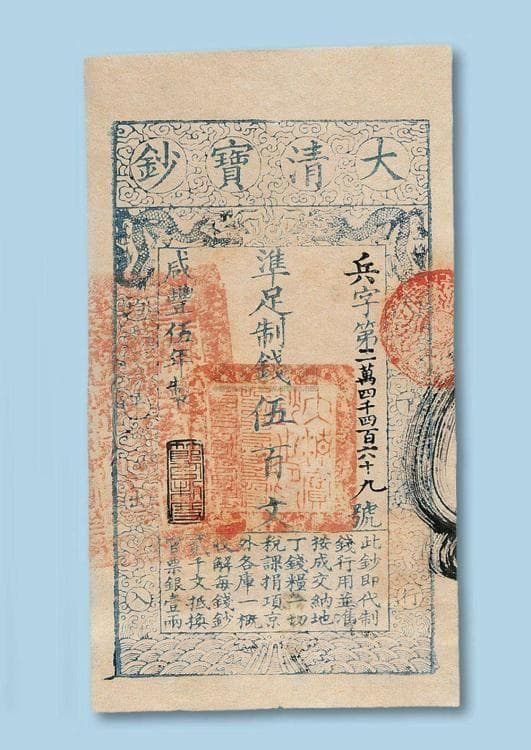 大清寶鈔
兵字第二萬四千四百六十九號
準足制錢伍百文
咸豐伍年製
此鈔即代制
錢行用並准
按成交納地
丁錢糧一切
稅課捐項京
外各庫一概
收解每錢鈔
貳千文抵換
官票銀壹兩